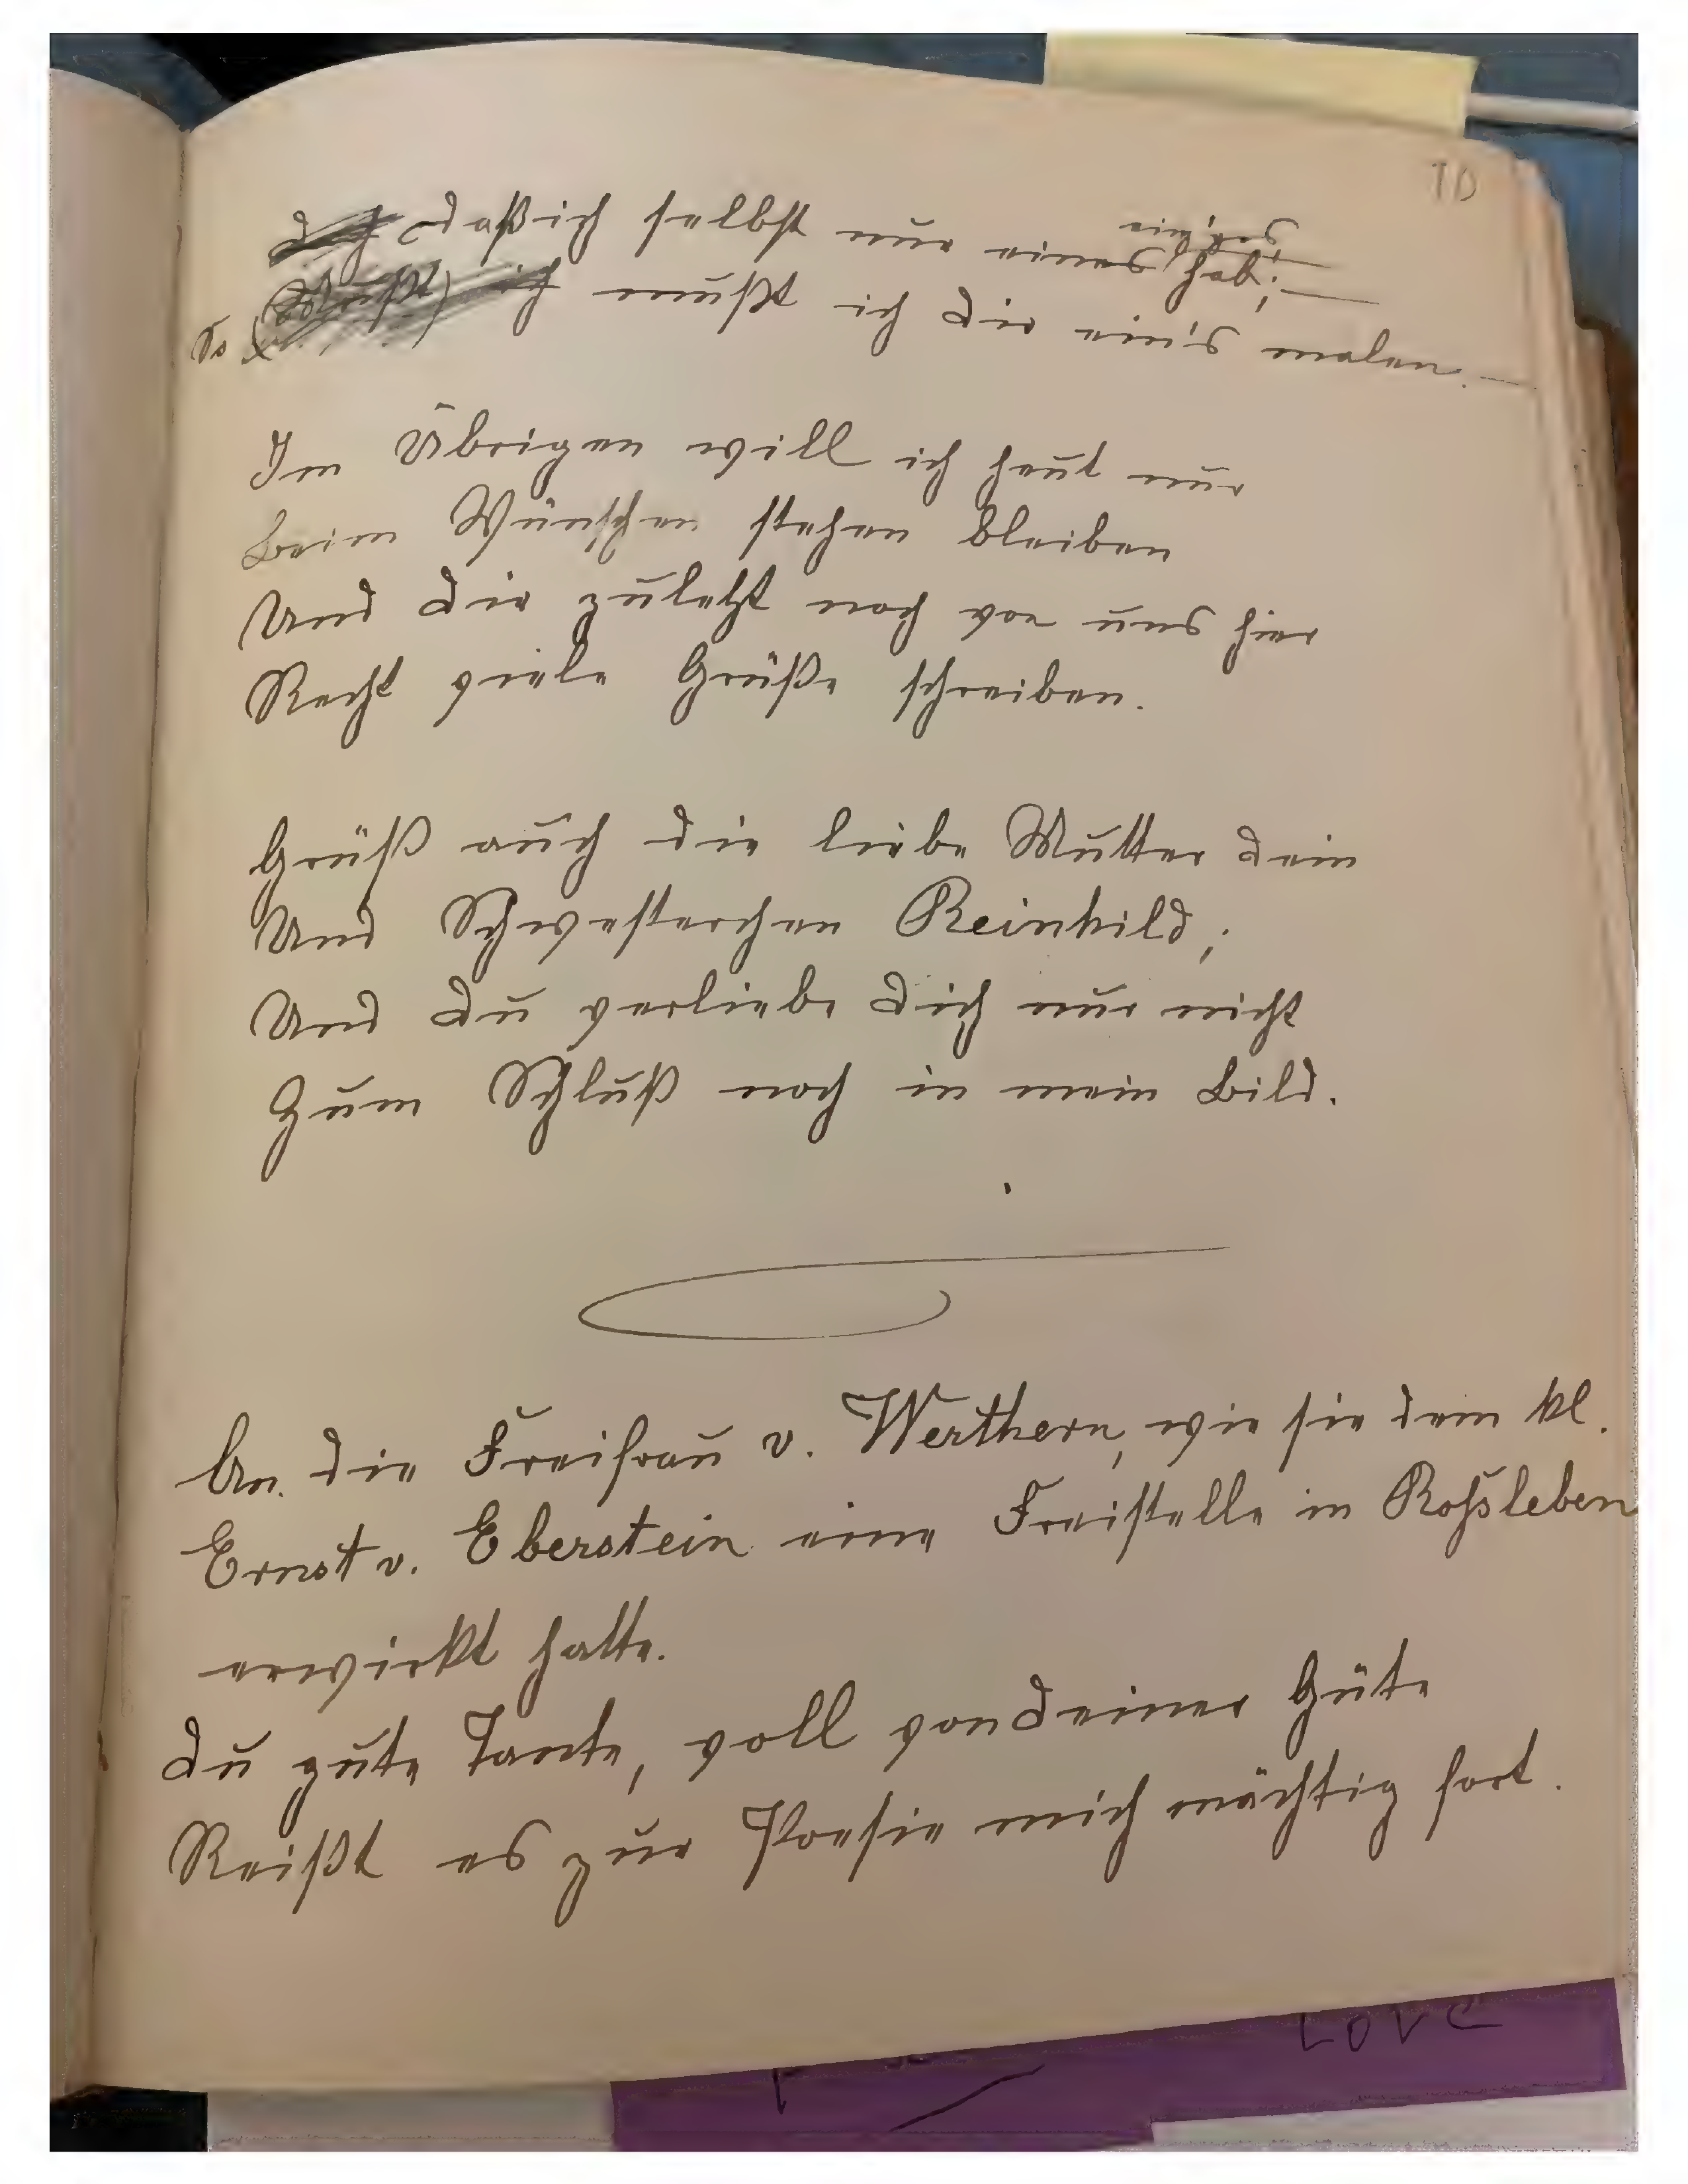 10
daß ich selbst nur eines hab;
einziges
So mußt ich dir ein's malen. —
Im Übrigen will ich heut nur
Beim Wünschen stehen bleiben
Und dir zuletzt noch von uns hier
Recht viele Grüße schreiben.
Grüß auch die liebe Mutter dein
Und Schwesterchen Reinhild;
Und du verliebe dich nur nicht
Zum Schluß noch in mein Bild.
An die Freifrau v. Werthern, wie sie dem kl.
Ernst v. Eberstein eine Freistelle in Roßleben
erwirkt hatte.
Du gute Tante, voll von deiner Güte
Reißt es zur Poesie mich mächtig fort.
LOVE